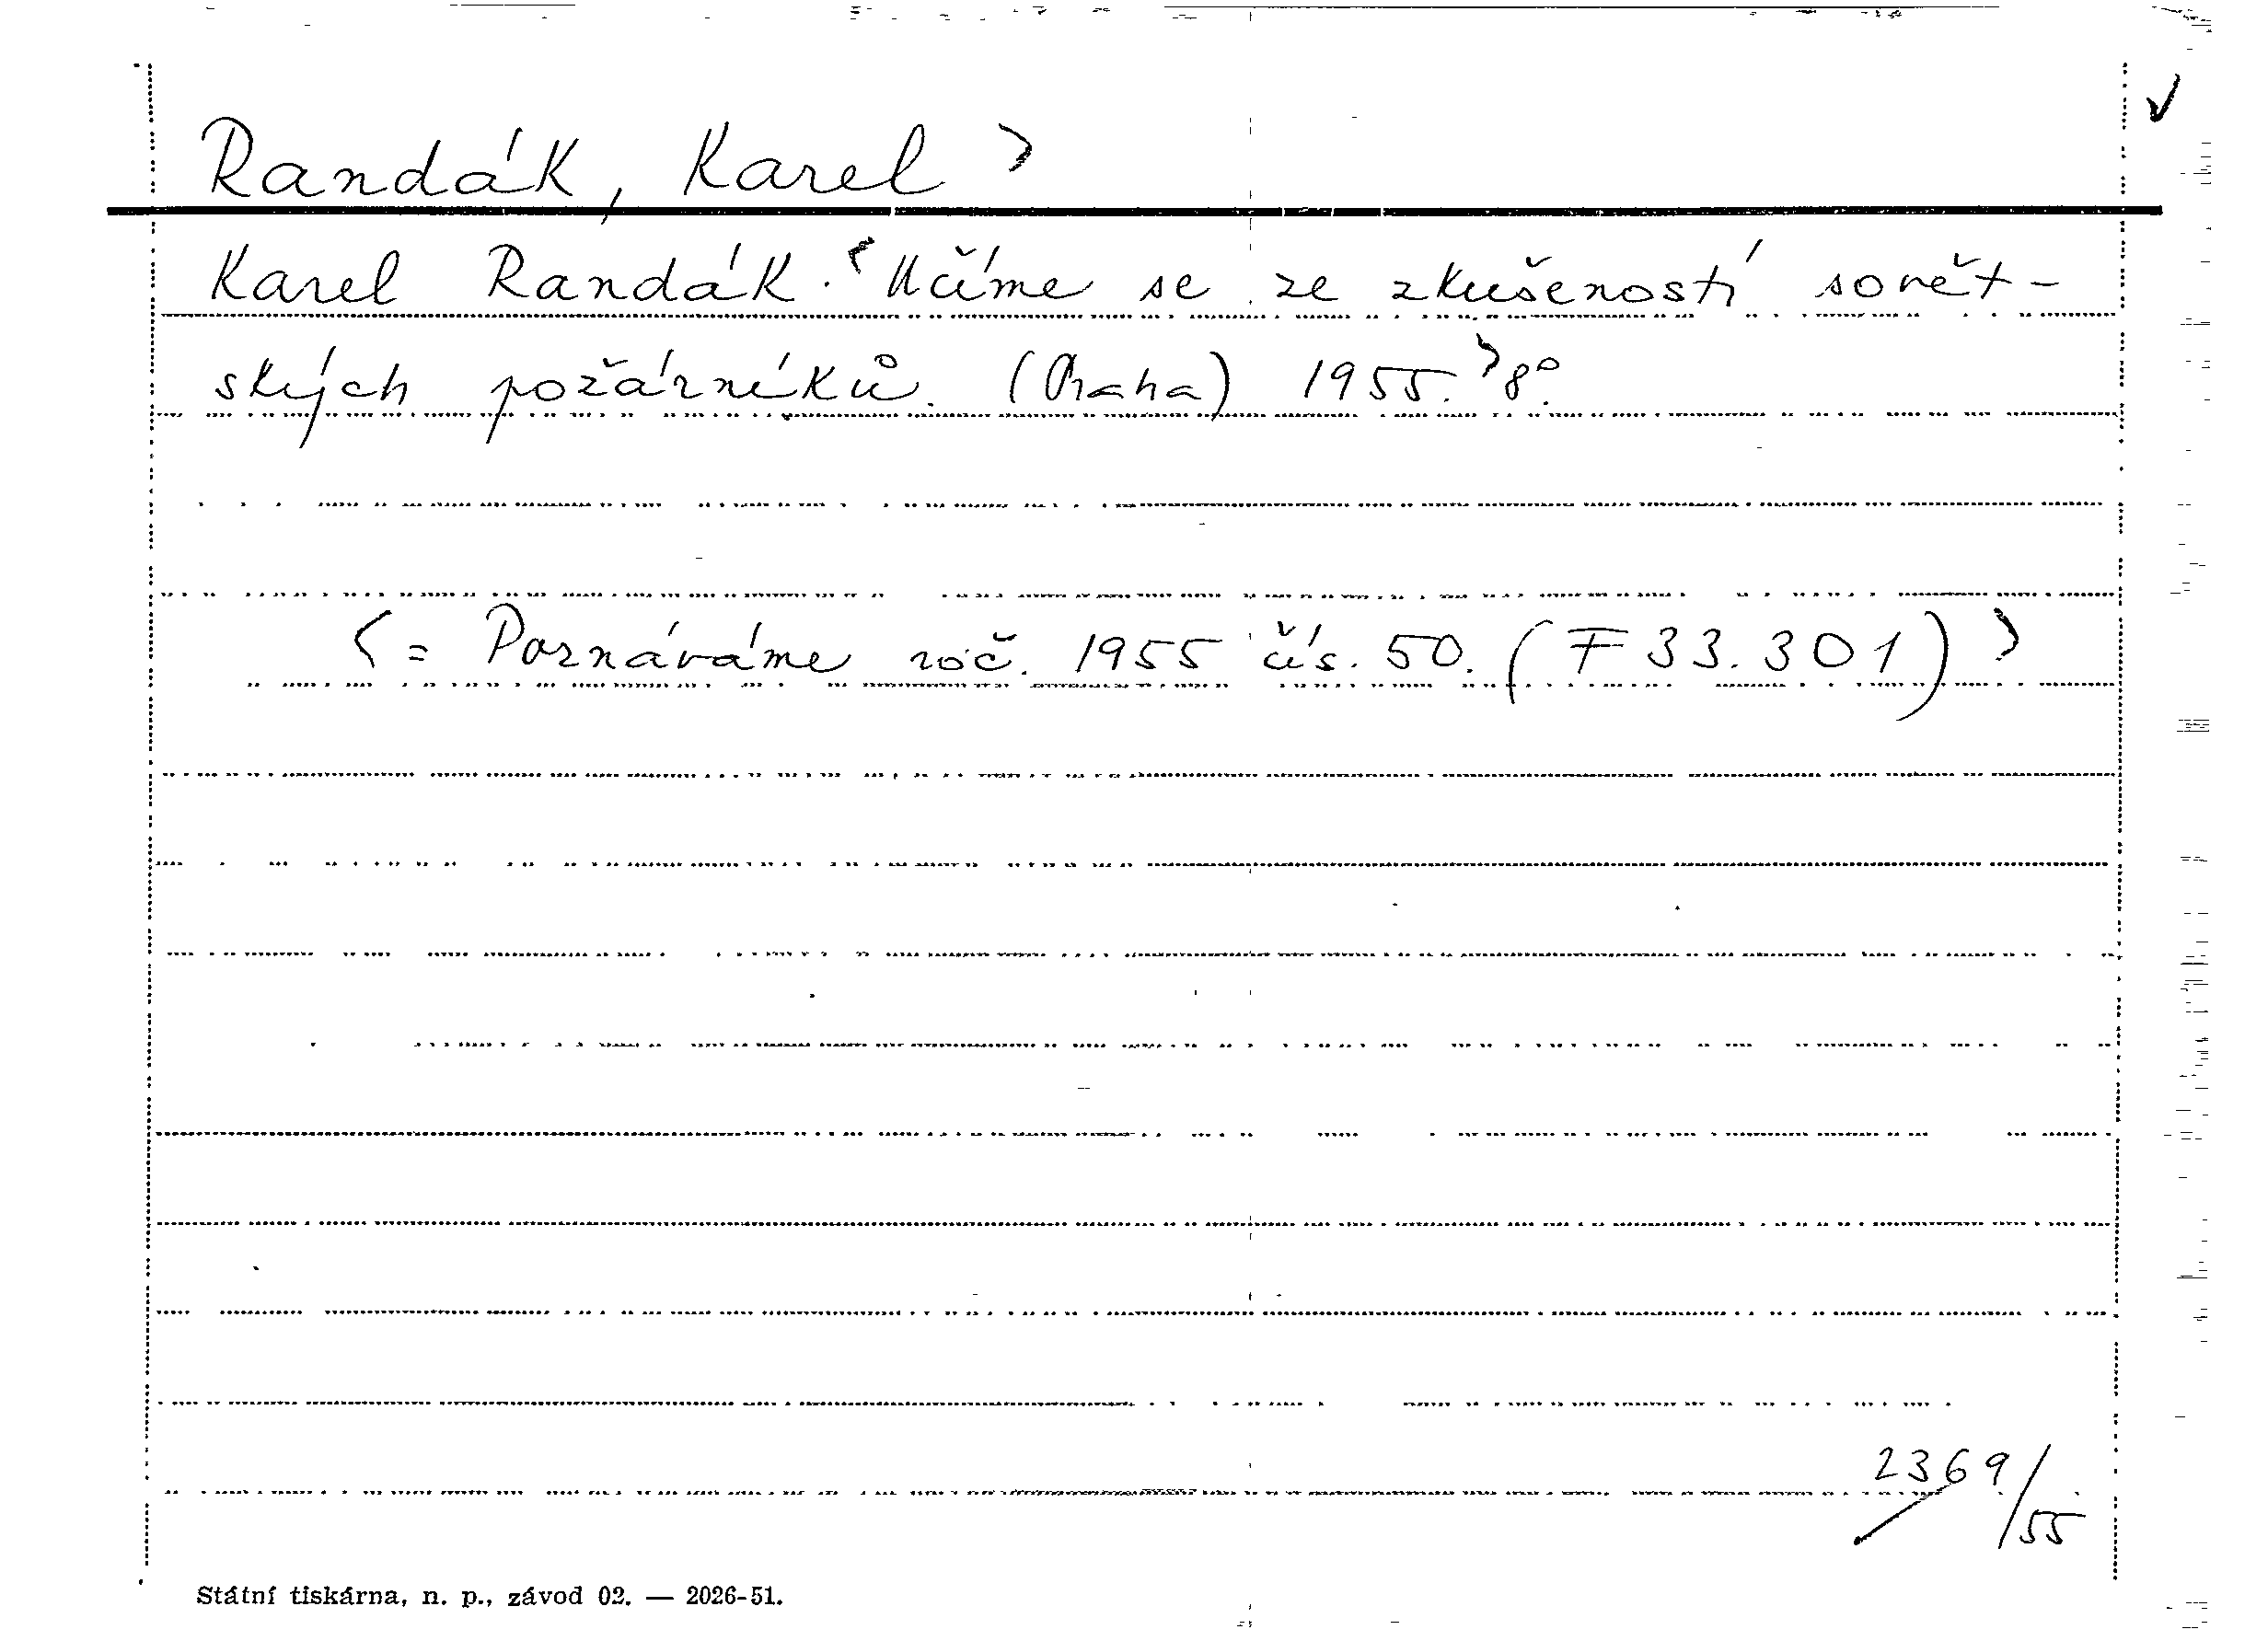 Randák, Karel >
Karel Randák. <Učíme se ze zkušeností sovět-
ských požárníků. (Praha) 1955.> 8°.
<= Poznáváme roč. 1955 čís. 50. (F 33.301)>
2369/55
Státní tiskárna, n. p., závod 02. — 2026-51.